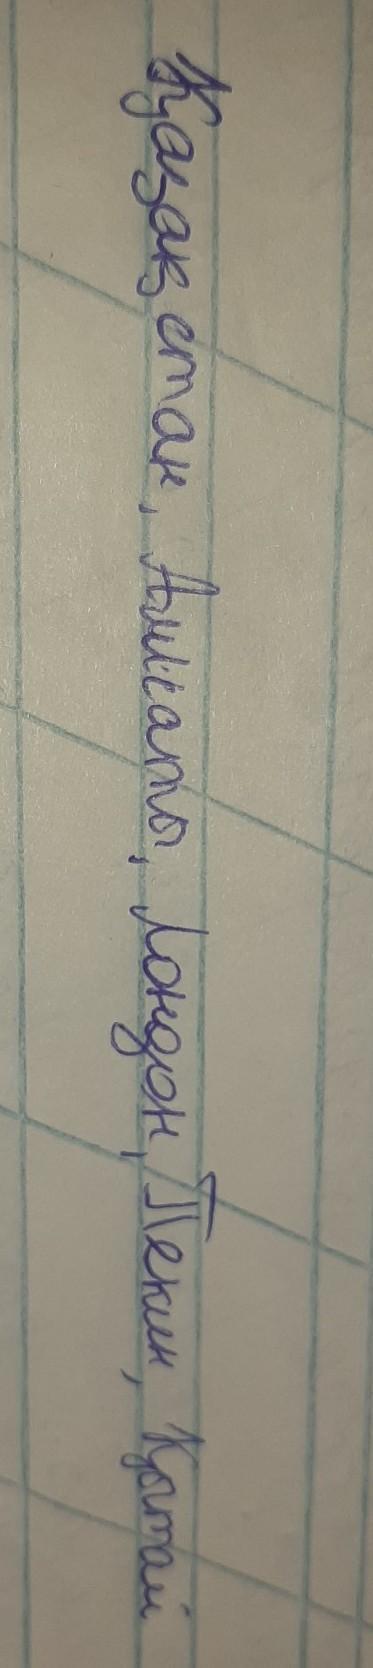 Қазақстан, Алматы, Лондон, Пекин, Қытай